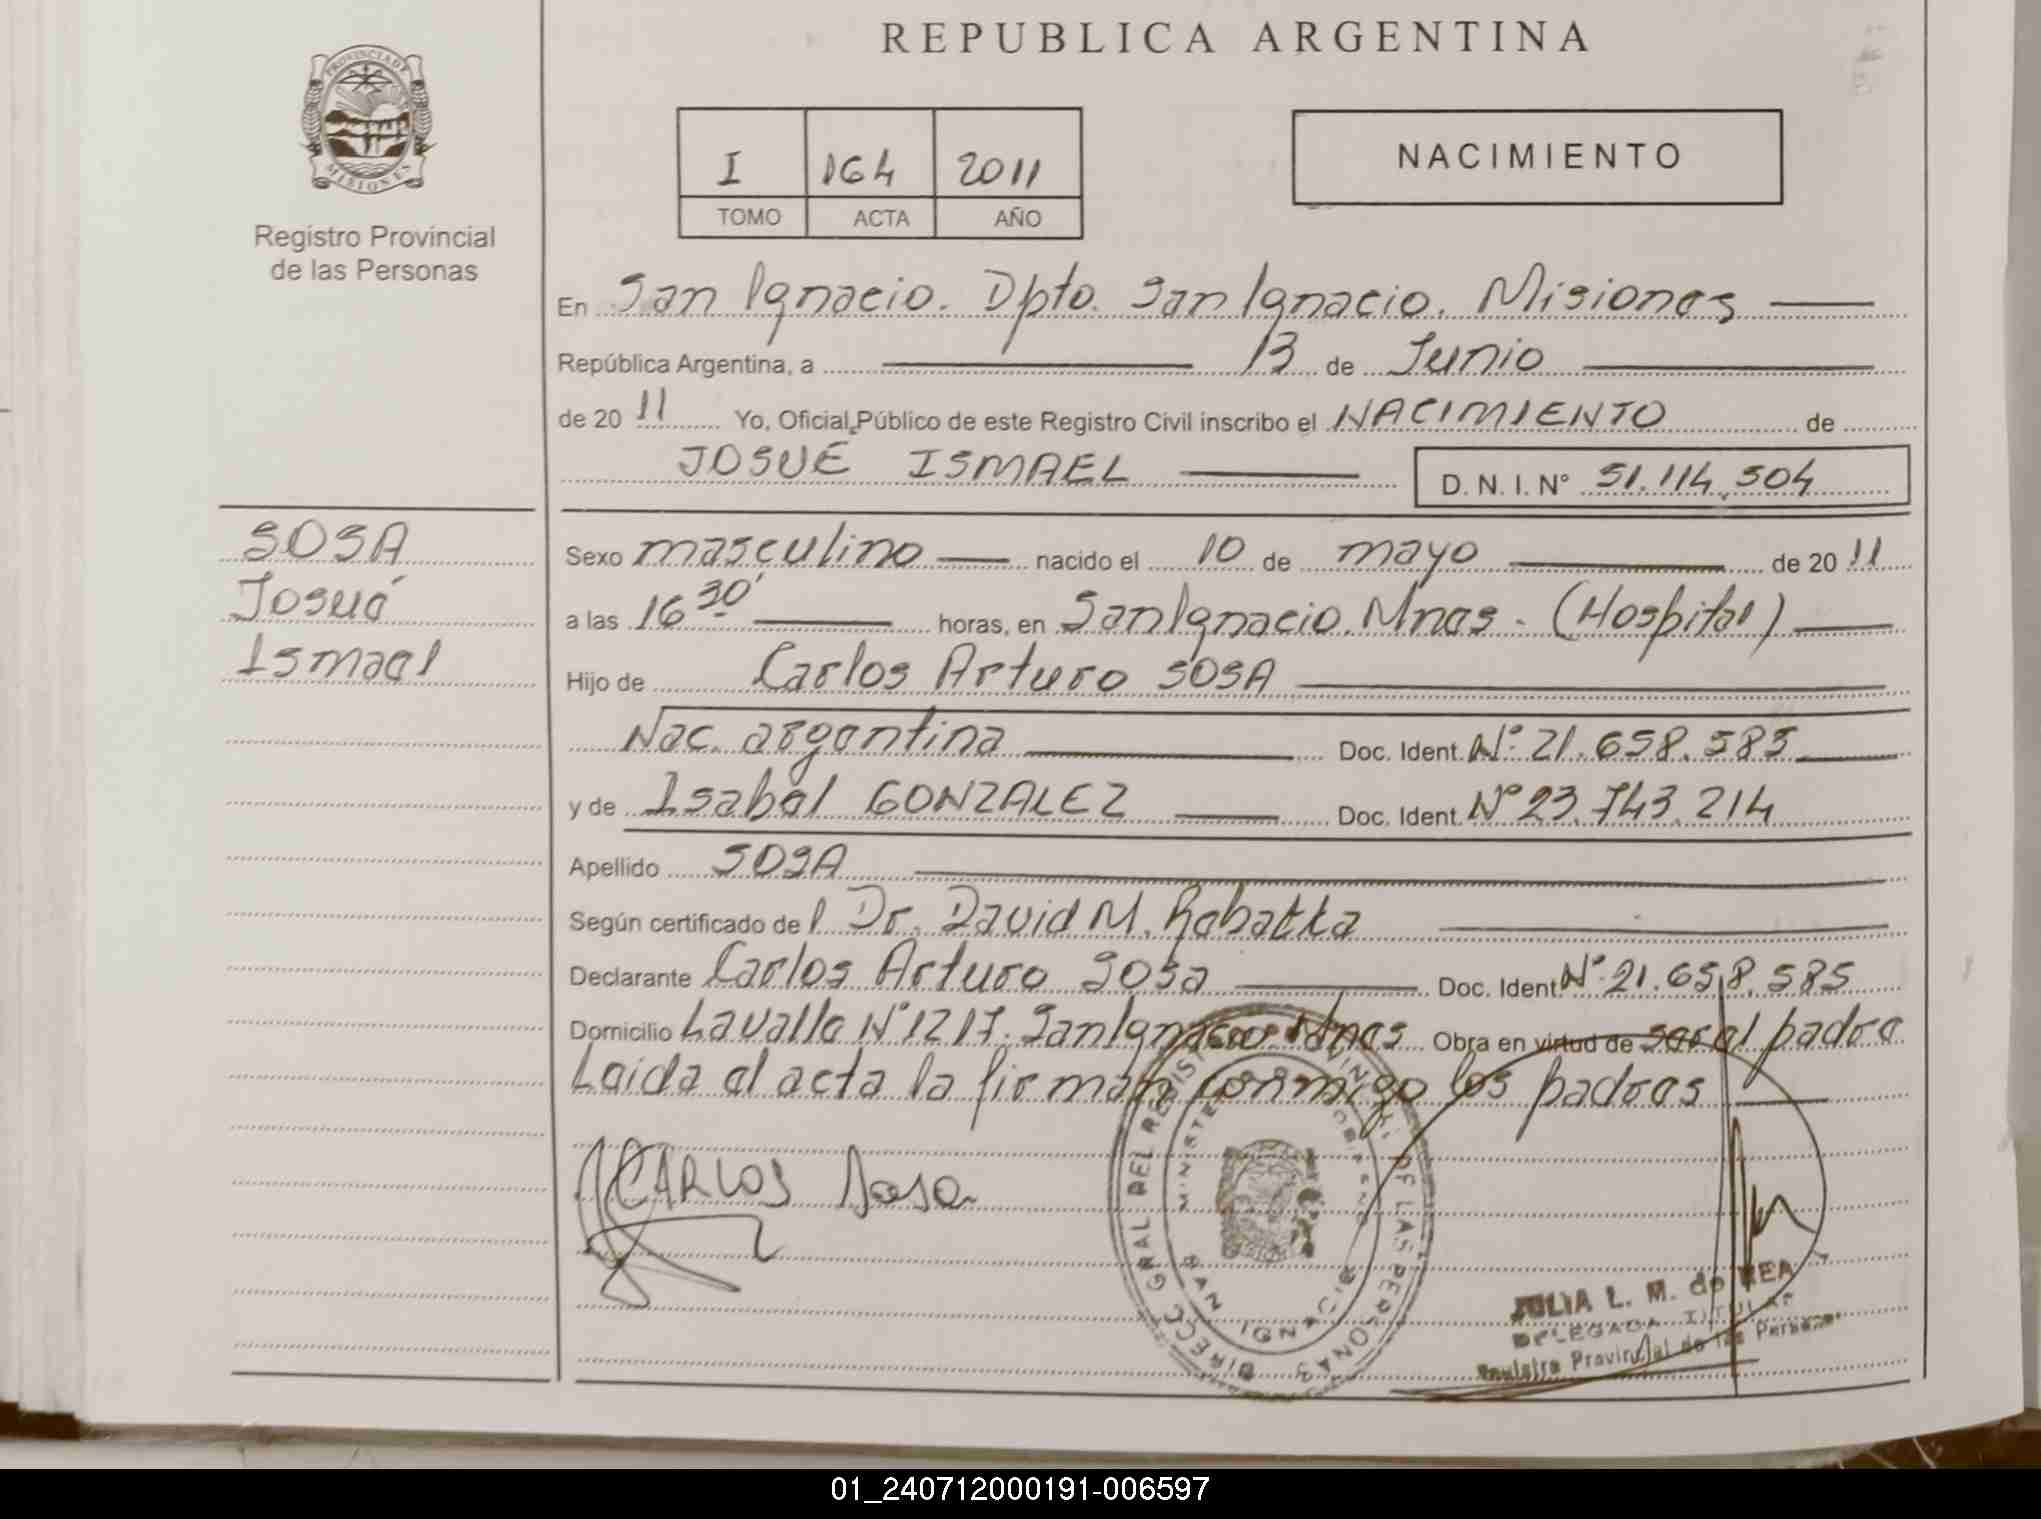 REPUBLICA ARGENTINA
PROVINCIA DE
MISIONES
Registro Provincial
de las Personas
I 164 2011
TOMO ACTA AÑO
NACIMIENTO
En San Ignacio. Dpto. San Ignacio. Misiones
República Argentina, a 13 de Junio
de 20 11 Yo, Oficial Público de este Registro Civil inscribo el NACIMIENTO de
JOSUÉ ISMAEL D. N. I. N° 51.114.504
SOSA
Josué
Ismael
Sexo masculino nacido el 10 de mayo de 20 11
a las 16 30' horas, en San Ignacio. Mnes. (Hospital)
Hijo de Carlos Arturo SOSA
Nac. argentina Doc. Ident. N° 21.658.585
y de Isabel GONZALEZ Doc. Ident. N° 23.743.214
Apellido SOSA
Según certificado de l Dr. David M. Rabatta
Declarante Carlos Arturo Sosa Doc. Ident. N° 21.658.585
Domicilio Lavalle N° 1217. San Ignacio Mnes Obra en virtud de ser el padre
Leida el acta la firman conmigo los padres
CARLOS Sosa
DIRECC GRAL DEL REGISTRO PROVINCIAL DE LAS PERSONAS
MINISTERIO DE GOBIERNO
SAN IGNACIO
JULIA L. M. de REA
DELEGADA TITULAR
Registro Provincial de las Personas
01_240712000191-006597